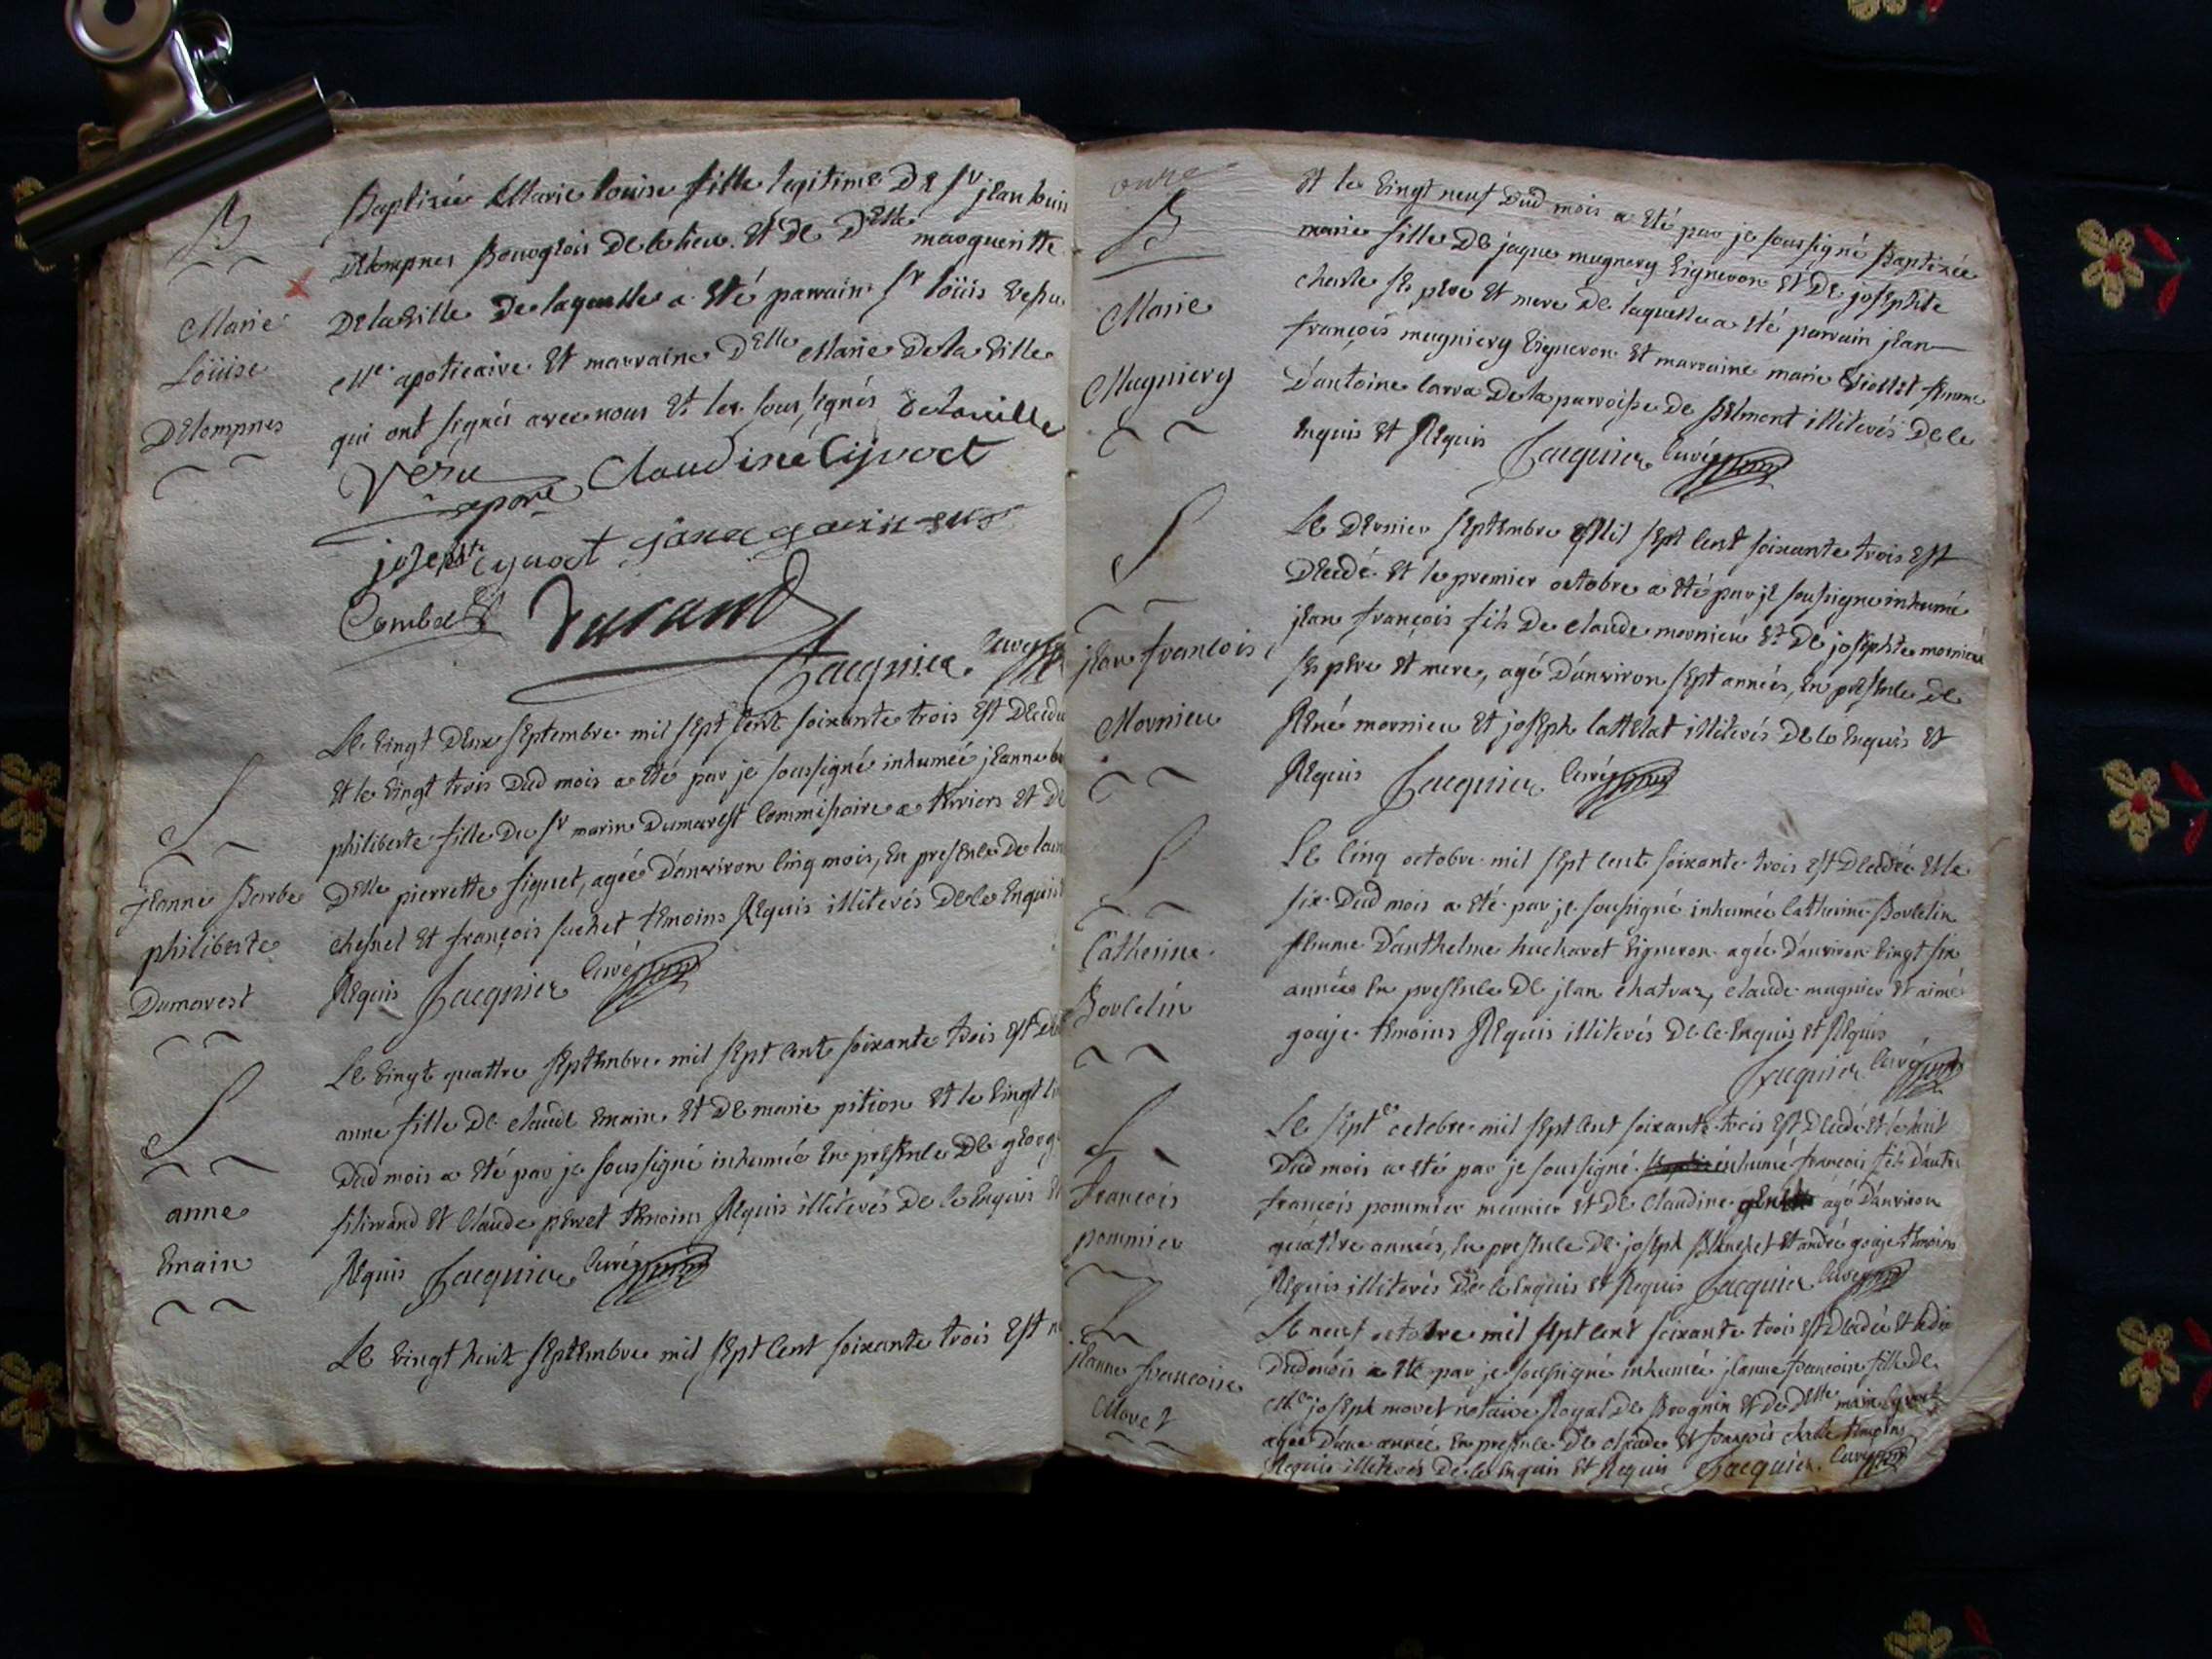 B
Marie
Loüise
Delompnes
Baptizée Marie louise fille legitime De Sr jean louis
Delompnes Bourgeois De ce lieu. Et De Delle margueritte
Delaville De laquelle a Eté parrain Sr loüis Vesu
Me apoticaire Et marraine Delle Marie De la Ville
qui ont signés avec nous Et les sous signés Delaville
Vesu Claudine Cyvoct
apore
joseph Cyvoct
Combet Durand
Jacquier Curé
S
jeanne Barbe
philiberte
Dumarest
Le vingt Deux septembre mil sept cent soixante trois Est Decedée
Et le vingt trois Dud mois a Eté par je soussigné inhumée jeanne
philiberte fille Du Sr marin Dumarest Commissaire a terriers Et De
Delle pierrette siguet, agée D'anviron cinq mois, En presence De
chesnel Et françois suchet temoins Requis illiterés De ce Enquis
Requis Jacquier Curé
S
anne
Emain
Le vingt quattre septembre mil sept cent soixante trois Est
anne fille De claude Emain Et De marie pition Et le vingt
Dud mois a Eté par je soussigné inhumée En presence De george
filiwand Et Claude perret temoins Requis illiterés De ce Enquis Et
Requis Jacquier Curé
Le vingt huit septembre mil sept cent soixante trois Est
B
Marie
Mugniery
Et le vingt neuf Dud mois a Eté par je soussigné Baptizée
marie fille De jaque mugnery vigneron Et De josephte
charle ses pere Et mere De laquelle a Eté parrain jean
françois mugniery vigneron Et marraine marie Viollet femme
D'antoine larra De la parroisse De Belmont illiterés De ce
Enquis Et Requis Jacquier Curé
S
jean françois
Mornieu
Le Dernier septembre Mil sept cent soixante trois Est
Decedé Et le premier octobre a Eté par je soussigné inhumé
jean françois fils De claude mornieu Et De josephte mornieu
ses pere Et mere, agé D'anviron sept années, En presence De
René mornieu Et joseph lattelat illiterés De ce Enquis Et
Requis Jacquier Curé
S
Catherine
Borlelin
Le cinq octobre mil sept cent soixante trois Est Decedée Et le
six Dud mois a Eté par je soussigné inhumée Catherine Borlelin
femme D'anthelme hucharet vigneron agée D'anviron vingt six
années En presence De jean chatraz, claude mugnier Et aimé
gouje temoins Requis illiterés De ce Enquis Et Requis
Jacquier Curé
S
francois
pommier
Le sept octobre mil sept cent soixante trois Est Decedé Et le huit
Dud mois a Eté par je soussigné inhumé francois fils D'autre
françois pommier meunier Et De Claudine agé D'anviron
quattre années, En presence De joseph Blanchet Et andré gouje temoins
Requis illiterés De ce Enquis Et Requis Jacquier Curé
S
jeanne francoise
Moret
Le neuf octobre mil sept cent soixante trois Est Decedée Et le dix
Dud mois a Eté par je soussigné inhumée jeanne francoise fille De
Me joseph moret notaire Royal De Brognin Et De Delle marie Cyvoct
agée D'une année En presence De claude Et françois charle temoins
Requis illiterés De ce Enquis Et Requis Jacquier Curé